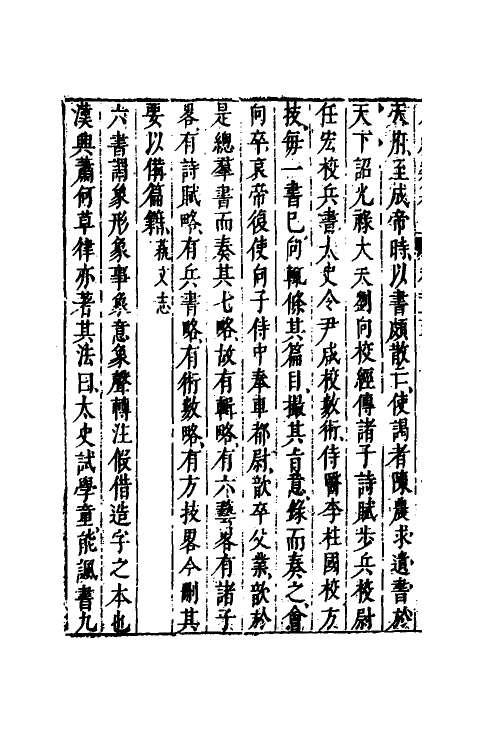 秘府至成帝時以書頗散亡使謁者陳農求遺書於
天下詔光祿大夫劉向校經傳諸子詩賦步兵校尉
任宏校兵書太史令尹咸校數術侍醫李柱國校方
技每一書已向輒條其篇目撮其旨意錄而奏之會
向卒哀帝復使向子侍中奉車都尉歆卒父業歆於
是總羣書而奏其七略故有輯略有六藝畧有諸子
畧有詩賦略有兵書略有術數略有方技畧今刪其
要以備篇籍藝文志
六書謂象形象事象意象聲轉注假借造字之本也
漢興蕭何草律亦著其法曰太史試學童能諷書九